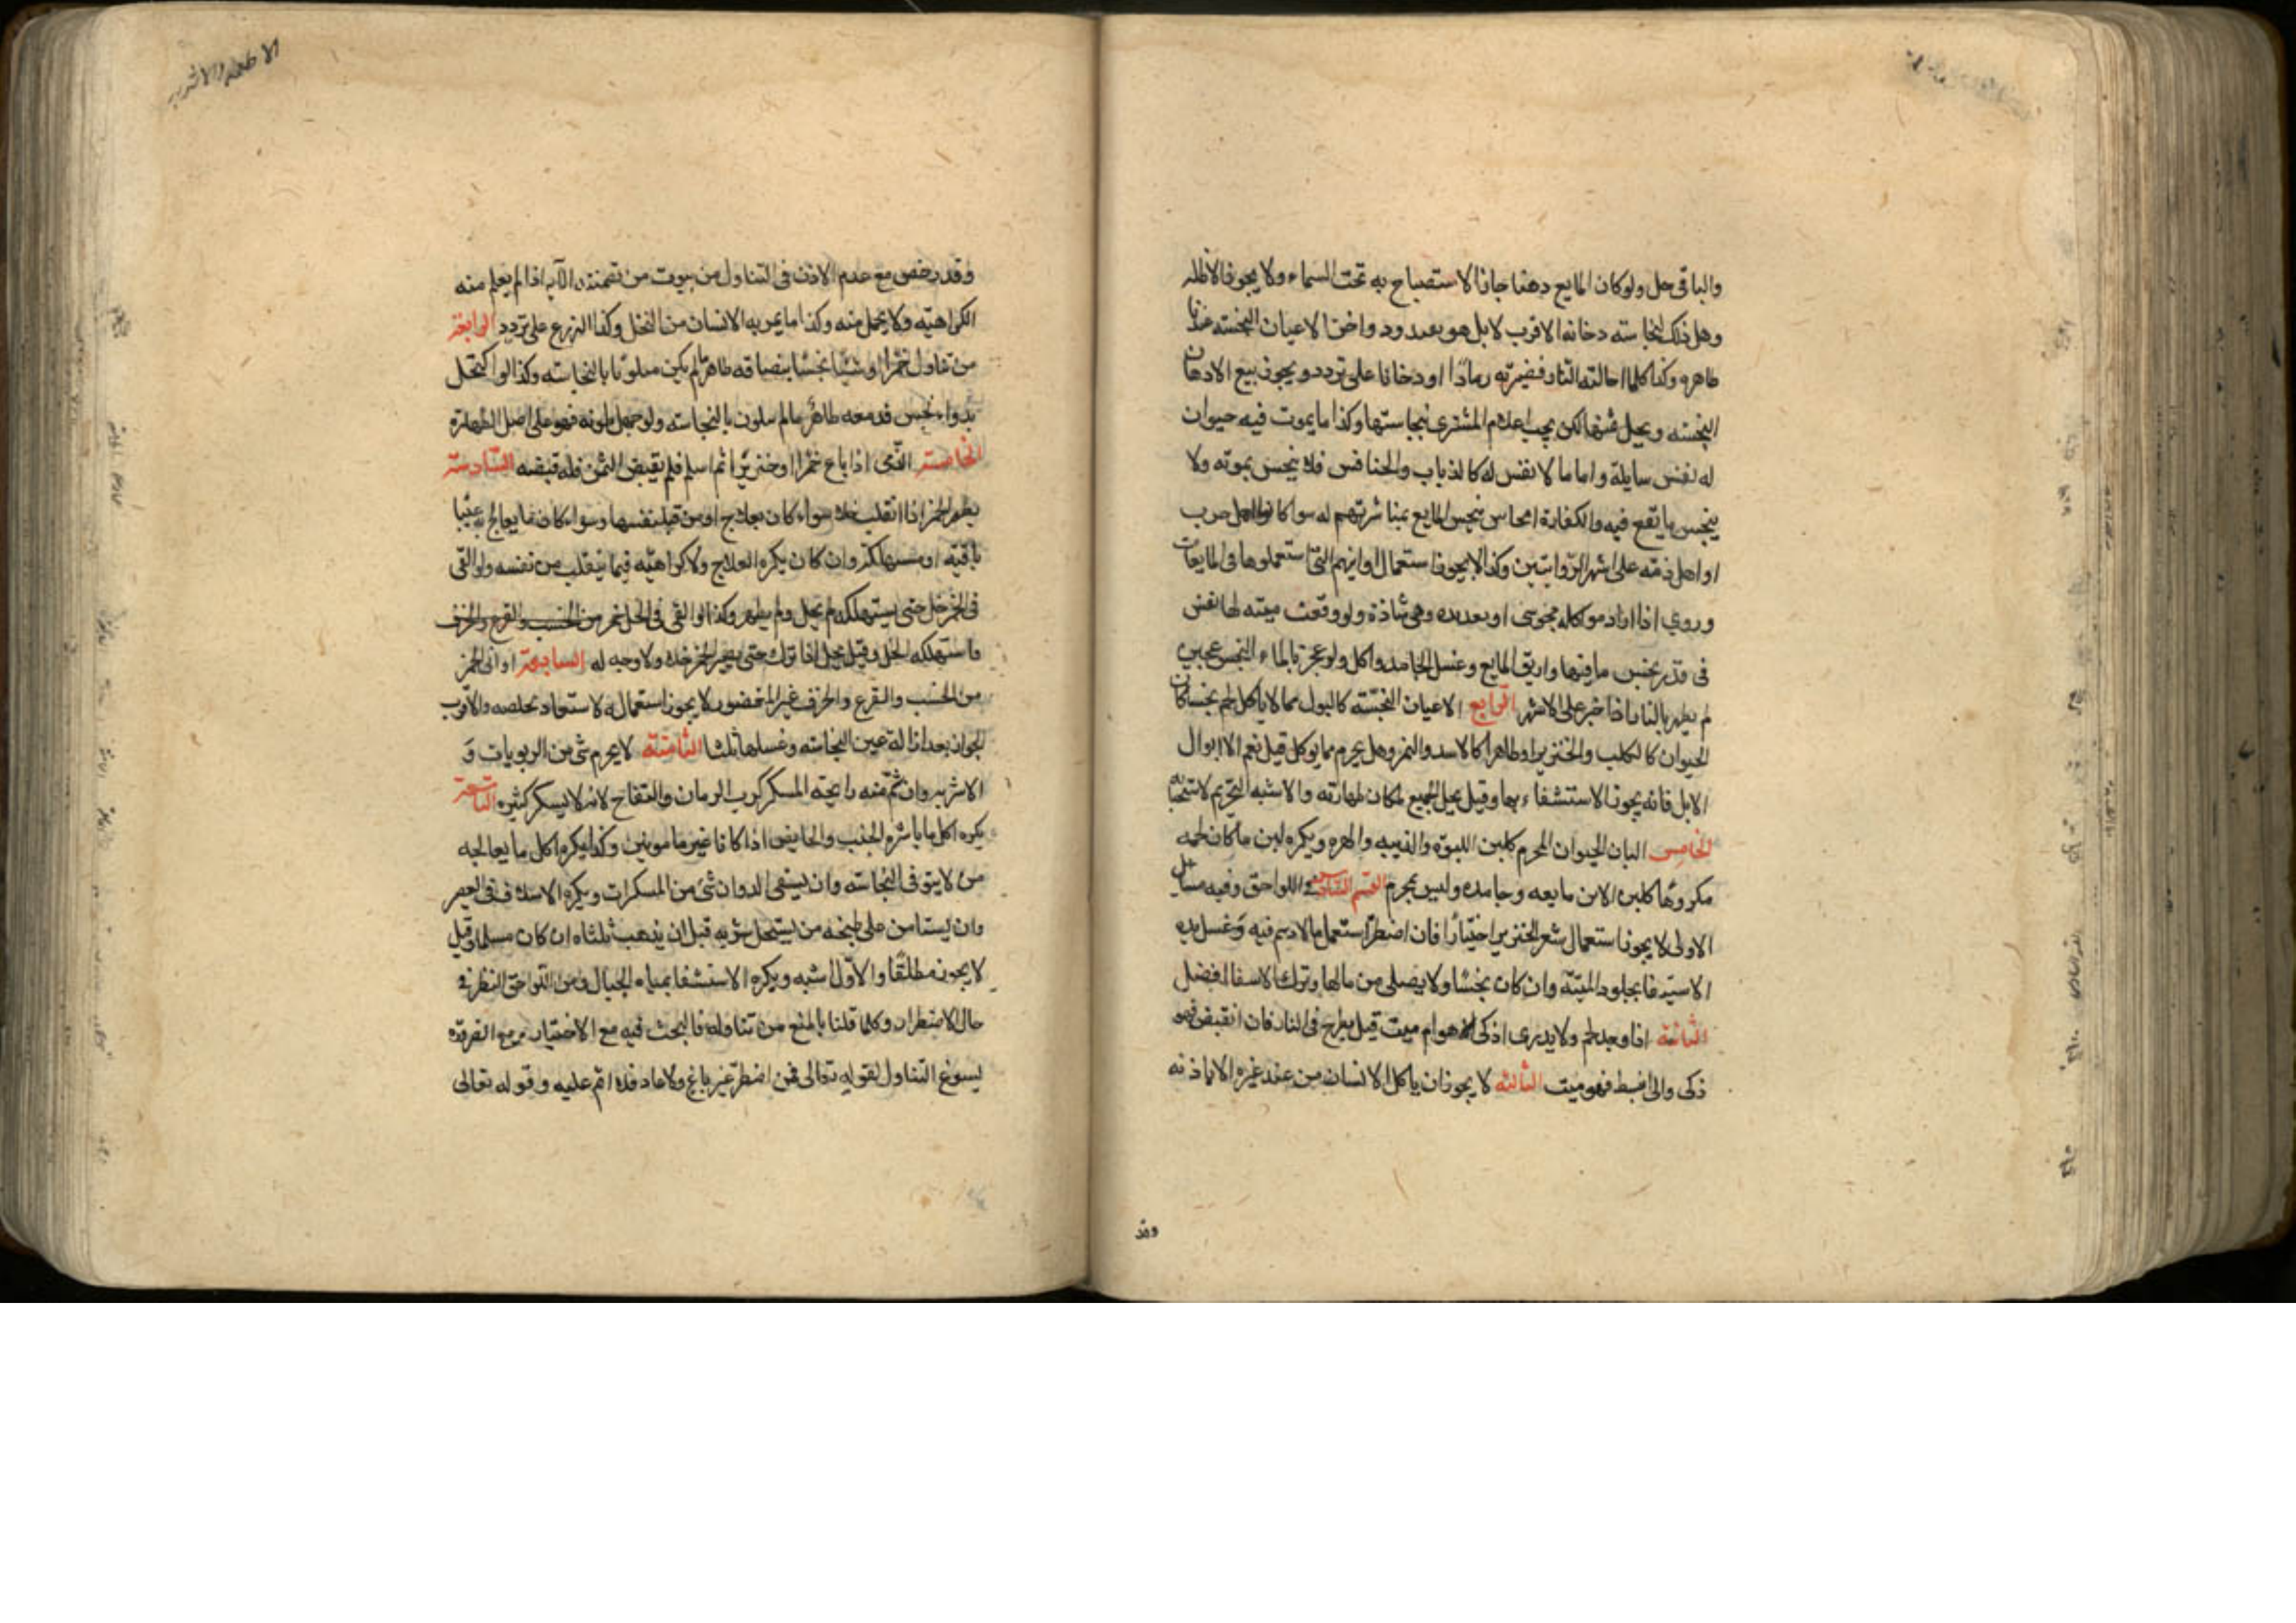 والباقي حل ولو كان المايع دهنا جاز الاستصباح به تحت السماء ولا يجوز الاظله
وهل ذلك لنجاسته دخانه الاقرب لا بل هو تعبد ودواخن الاعيان النجسته عندنا
طاهره وكذا كلما احالته النار فصيرته رمادًا او دخانا على تردد ويجوز بيع الادهان
النجسته ويحل ثمنها لكن يجب اعلام المشتري بنجاستها وكذا ما يموت فيه حيوان
له نفس سايلة واما ما لا نفس له كالذباب والخنافس فلا ينجس بموته ولا
ينجس ما يقع فيه والكفار انجاس ينجس المايع بمباشرتهم له سوا كانوا اهل حرب
او اهل ذمته على اشهر الروايتين وكذا لا يجوز استعمال اوانيهم التي استعملوها في المايعات
وروي اذا اراد مواكله مجوسى امره بغسل يده وهي شاذة ولو وقعت ميته لها نفس
في قدر نجس ما فيها واريق المايع وغسل الجامد واكل ولو عجن بالماء النجس عجين
لم يطهر بالنار اذا خبز على الاشهر الرابع الاعيان النجسته كالبول مما لا ياكل لحم نجسا كان
الحيوان كالكلب والخنزير او طاهرا كالاسد والنمر وهل يحرم مما يوكل قيل نعم الا ابوال
الابل فانه يجوز الاستشفاء بها وقيل يحل الجميع لمكان طهارته والاشبه التحريم لاستخباثه
الخامس البان الحيوان المحرم كلبن اللبوه والذيبه والهره ويكره لبن ما كان لحمه
مكروهًا كلبن الاتن مايعه وجامده وليس بمحرم القسم السادس في اللواحق وفيه مسائل
الاولى لا يجوز استعمال شعر الخنزير اختيارًا فان اضطر استعمل ما لا دسم فيه وغسل يده
الاستقا بجلود الميته وان كان نجسًا ولا يصلى من مائها وترك الاستقا افضل
الثانية اذا وجد لحم ولا يدري اذكى هو ام ميت قيل يطرح في النار فان انقبض فهو
ذكى وان انبسط فهو ميت الثالثه لا يجوز ان ياكل الانسان من عند غيره الا باذنه
وقد
الاطعمه والاشربه
وقد رخص مع عدم الاذن في التناول من بيوت من تضمنته الآيه اذا لم يعلم منه
الكراهيته ولا يحمل منه وكذا ما يمر به الانسان من النخل وكذا الزرع على تردد الرابعة
من تناول خمرًا او شيئًا نجسًا فبصاقه طاهر ما لم يكن متلوثا بالنجاسته وكذا لو اكتحل
بدواء نجس فدمعه طاهر ما لم يتلون بالنجاسته ولو جهل تلونه فهو على اصل الطهارة
الخامسة الذمى اذا باع خمرًا او خنزيرًا ثم اسلم فلم يقبض الثمن فله قبضه السادسة
يطهر الخمر اذا انقلبت خلا سواء كان بعلاج او من قبل نفسها وسواء كان ما يعالج به عينًا
باقيه او مستهلكه وان كان يكره العلاج ولا كراهيته فيما ينقلب من نفسه ولو القى
في الخمر خل حتى يستهلكه لم يحل ولم يطهر وكذا لو القى في الخل خمر من الخشب والقرع والخزف
فاستهلكه الخل وقيل يحل اذا ترك حتى يصير الخمر خلا ولا وجه له السابعة اوانى الخمر
من الخشب والقرع والخزف غير المغضور لا يجوز استعماله لاستبعاد تخلصه والاقرب
الجواز بعد ازالة عين النجاسته وغسلها ثلثا الثامنة لا يحرم شئ من الربوبات و
الاشربه وان شم منه رايحة المسكر كرب الرمان والتفاح لانه لا يسكر كثيره التاسعة
يكره اكل ما باشره الجنب والحايض اذا كانا غير مامونين وكذا يكره اكل ما يعالجه
من لا يتوقى النجاسته وان يسقى الدواب شئ من المسكرات ويكره الاسلاف في العصير
وان يستامن على طبخه من يستحل شربه قبل ان يذهب ثلثاه ان كان مسلما وقيل
لا يجوز مطلقًا والاول اشبه ويكره الاستشفا بمياه الجبال ومن اللواحق النظر في
حال الاضطرار وكلما قلنا بالمنع من تناوله فالبحث فيه مع الاختيار ومع الضروره
يسوغ التناول لقوله تعالى فمن اضطر غير باغ ولا عاد فلا اثم عليه وقوله تعالى